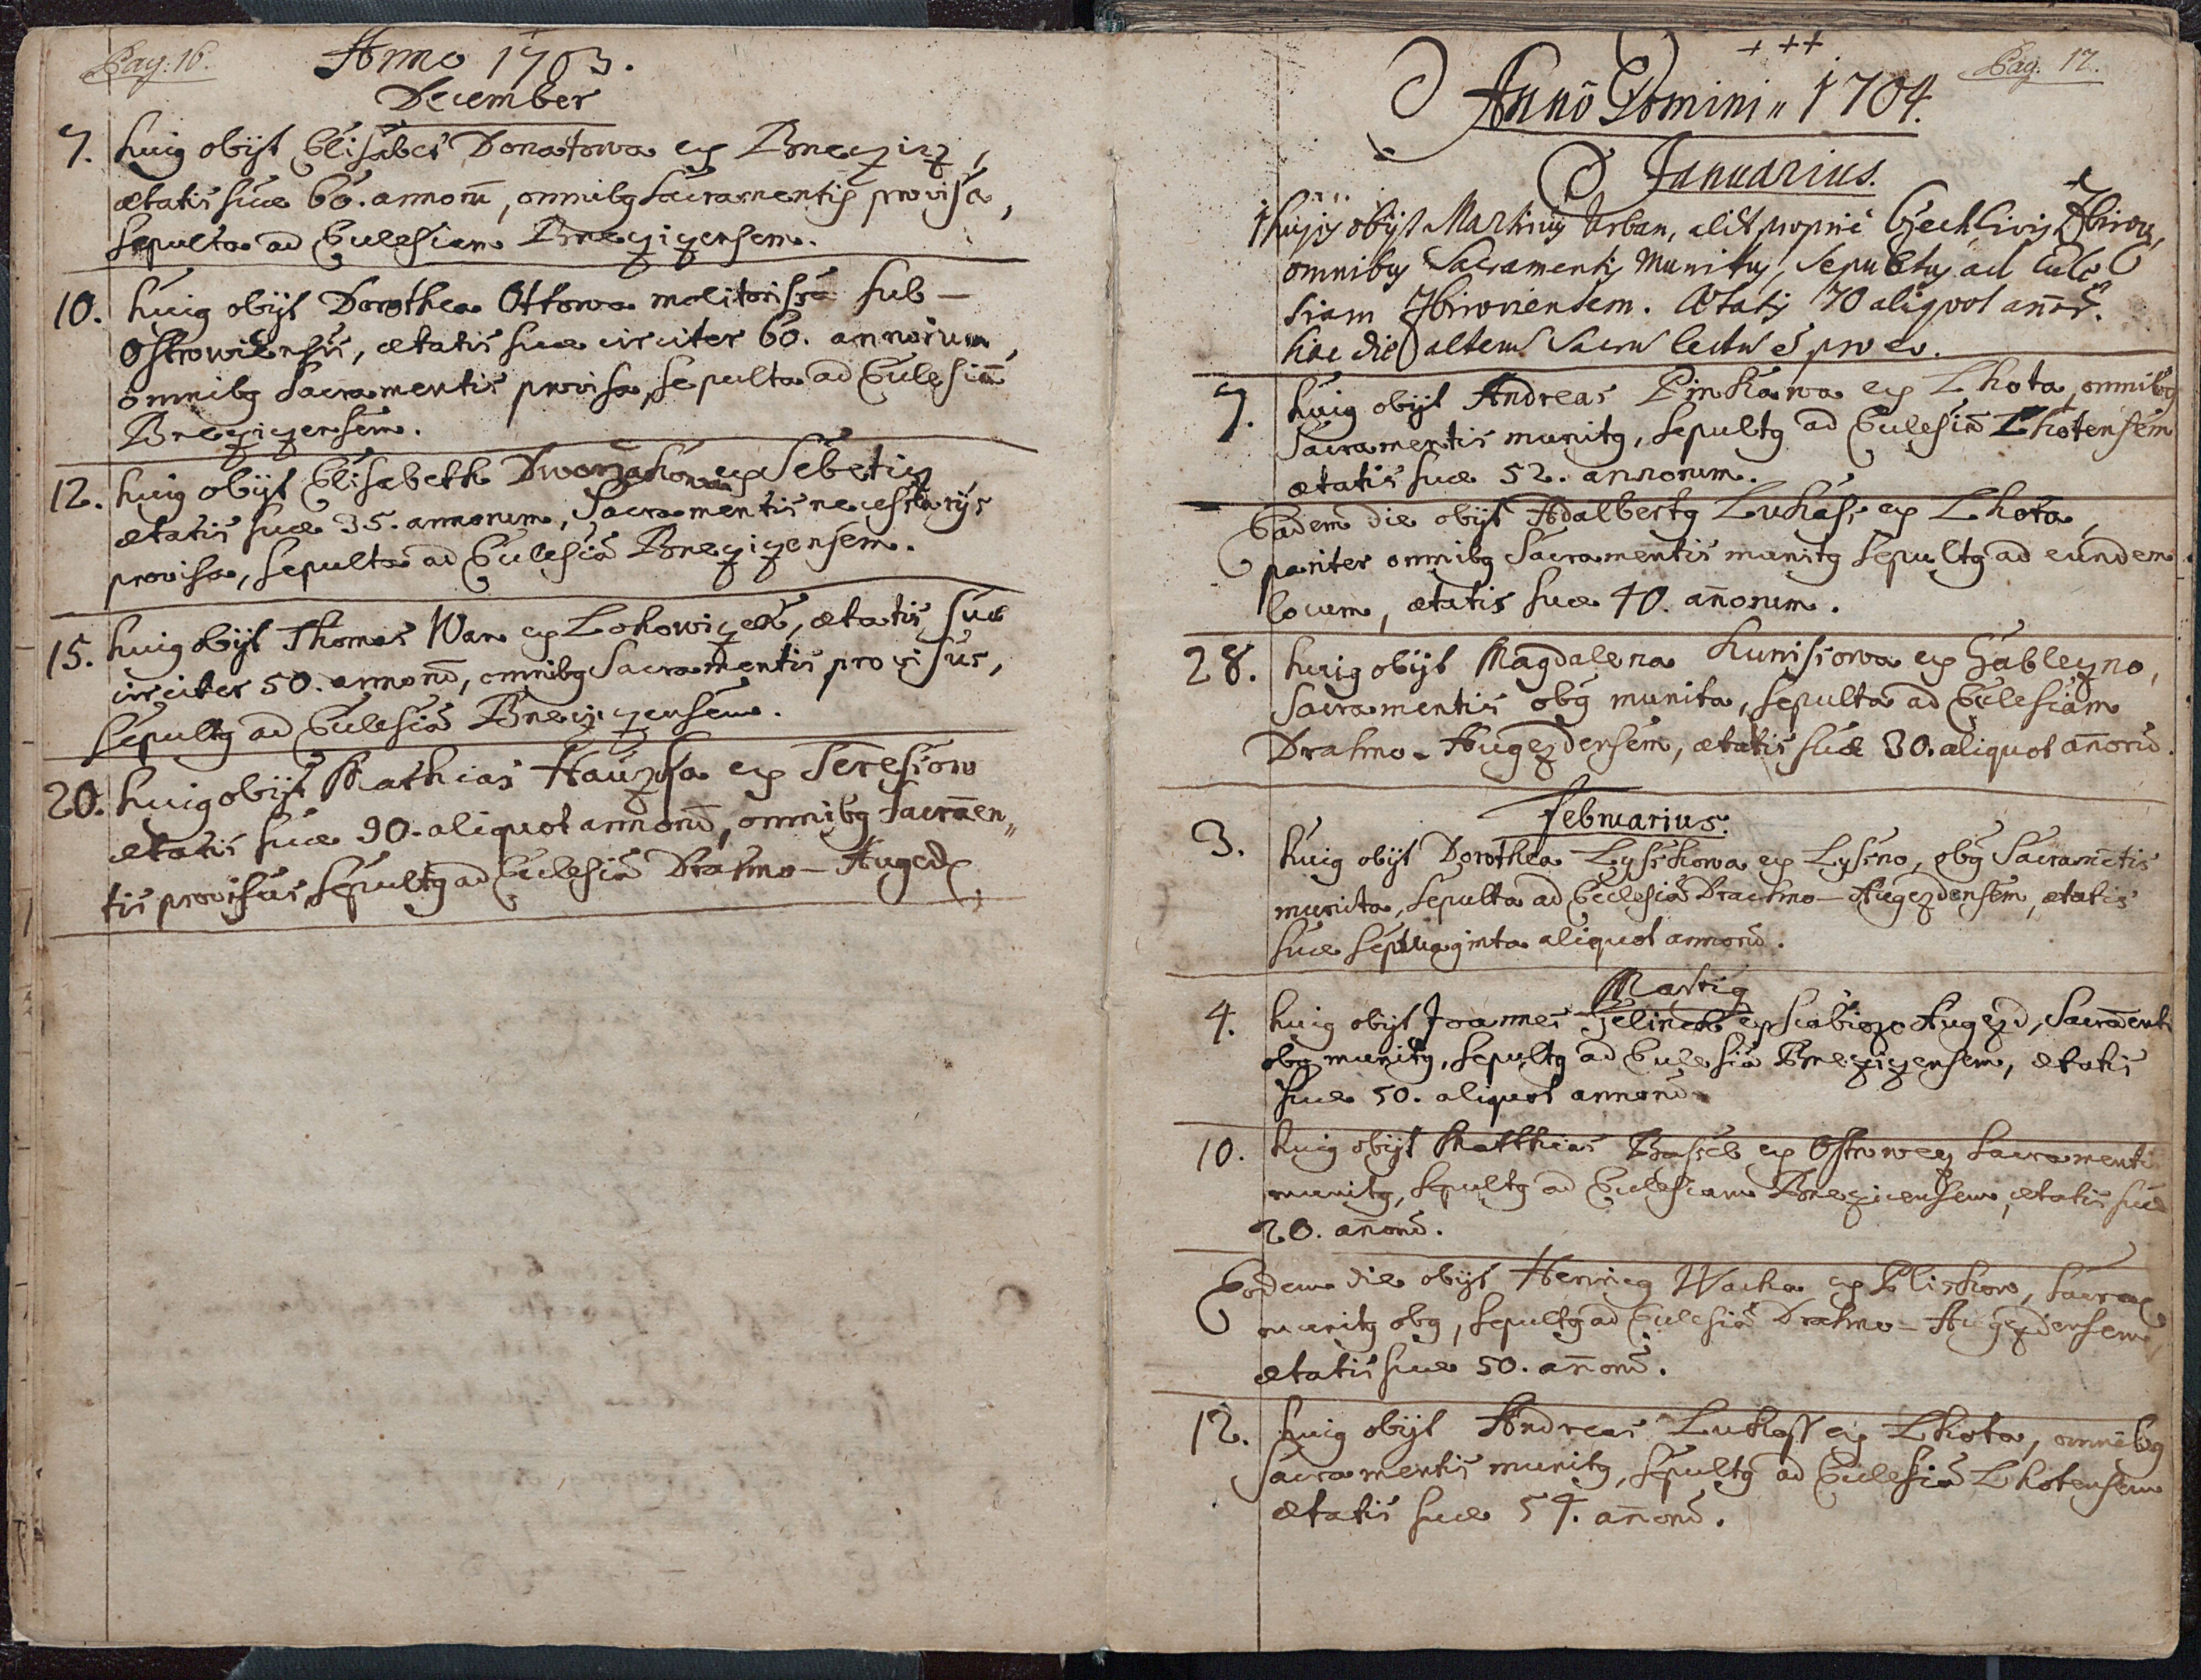 Pag: 16.
Anno 1703.
December
7. huig obijt Elisabet Donatowa ex Brzeziz,
ætatis suæ 60. annorū, omnibg Sacramentis provisa,
Sepulta ad Eclesiam Brzezizensem.
10. huig obijt Dorothea Ottowa molitorissa sub-
Ostrowiensis, ætatis suæ circiter 60. annorum,
omnibg Sacramentis provisa, Sepulta ad Eclesiā
Brzezizensem.
12. huig obijt Elisabeth Dworzakowa ex Sebetiz
ætatis suæ 35. annorum, Sacramentis necessarijs
provisa, Sepulta ad Eclesiā Brzezizensem.
15. huig obijt Thomas Wan ex Lohowiczek, ætatis suæ
circiter 50. annorū, omnibg Sacramentis provisus,
Sepultg ad Eclesiā Brzezizensem.
20. huig obijt Mathias Hauzka ex Teresiow
ætatis suæ 90. aliquot annorū, omnibg Sacramen„
tis provisus, Sepultg ad Eclesiā Drahno-Augezd.
+ ++
Pag. 17.
Annô Domini „ 1704.
Januarius.
1 hujg obijt Marting Urban, alit proprié Czech Civis Zbirow,
omnibg Sacramentis Munitg, Sepultg ad Ecle
siam Zbirowiensem. Ætatis 70 aliquot annor.
hac die altem Sacrū lectū é pro eo.
7. huig obijt Andreas Pinkawa ex Lhota, omnibg
Sacramentis munitg, Sepultg ad Eclesiā Lhotensem
ætatis suæ 52. annorum.
Eadem die obijt Adalbertg Lukass ex Lhota,
pariter omnibg Sacramentis munitg Sepultg ad eundem
locum, ætatis suæ 40. añorum.
28. huig obijt Magdalena Kunissowa ex Gablezno,
Sacramentis obg munita, Sepulta ad Eclesiam
Drahno-Augezdensem, ætatis suæ 30. aliquot añorū.
Februarius.
3. huig obijt Dorothea Lysskowa ex Lyssno, obg Sacramētis
munita, Sepulta ad Eclesiā Drachno-Augezdensem, ætatis
suæ septuaginta aliquot annorū.
Martig
4. huig obijt Joannes Jelinek ex Augezd, Sacramenti
obg munitg, Sepultg ad Eclesiā Brzezizensem, ætatis
suæ 50. aliquot annorū
10. huig obijt Matthias Basseb ex Ostrowez Sacramenti
munitg, Sepultg ad Eclesiam Brzezicensem, ætatis suæ
20. añorū.
Eodem die obijt Henricg Wacha ex Pliskow, Sacra
munitg obg, Sepultg ad Eclesiā Drahno-Augezdensem
ætatis suæ 50. añorū.
12. huig obijt Andreas Lukass ex Lhota, omnibg
Sacramentis munitg, Sepultg ad Eclesiā Lhotensem
ætatis suæ 54. añorū.